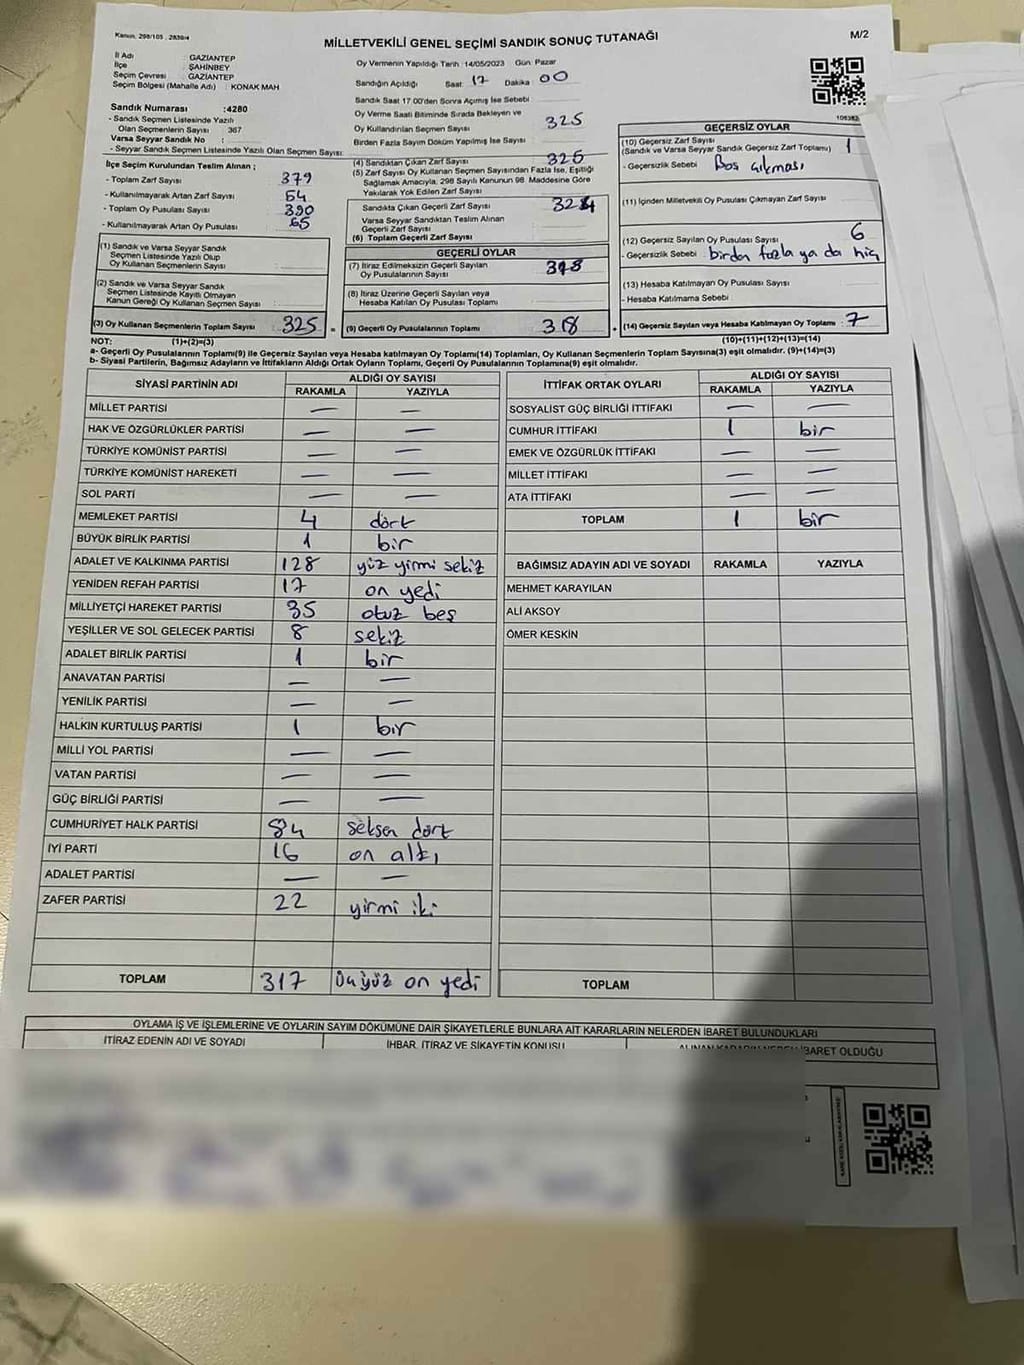 Kanun, 298/105 , 2839/4
MİLLETVEKİLİ GENEL SEÇİMİ SANDIK SONUÇ TUTANAĞI
M/2
İl Adı : GAZİANTEP
İlçe : ŞAHİNBEY
Seçim Çevresi : GAZİANTEP
Seçim Bölgesi (Mahalle Adı) : KONAK MAH
Sandık Numarası :4280
- Sandık Seçmen Listesinde Yazılı
Olan Seçmenlerin Sayısı : 367
Varsa Seyyar Sandık No :
- Seyyar Sandık Seçmen Listesinde Yazılı Olan Seçmen Sayısı:
İlçe Seçim Kurulundan Teslim Alınan ;
- Toplam Zarf Sayısı 379
- Kullanılmayarak Artan Zarf Sayısı 54
- Toplam Oy Pusulası Sayısı 390
- Kullanılmayarak Artan Oy Pusulası 65
(1) Sandık ve Varsa Seyyar Sandık
Seçmen Listesinde Yazılı Olup
Oy Kullanan Seçmenlerin Sayısı :
(2) Sandık ve Varsa Seyyar Sandık
Seçmen Listesinde Kayıtlı Olmayan
Kanun Gereği Oy Kullanan Seçmen Sayısı :
(3) Oy Kullanan Seçmenlerin Toplam Sayısı 325 =
Oy Vermenin Yapıldığı Tarih :14/05/2023 Gün: Pazar
Sandığın Açıldığı Saat: 17 Dakika : 00
Sandık Saat 17.00'den Sonra Açılmış İse Sebebi
Oy Verme Saati Bitiminde Sırada Bekleyen ve
Oy Kullandırılan Seçmen Sayısı 325
Birden Fazla Sayım Döküm Yapılmış İse Sayısı
(4) Sandıktan Çıkan Zarf Sayısı 325
(5) Zarf Sayısı Oy Kullanan Seçmen Sayısından Fazla İse, Eşitliği
Sağlamak Amacıyla, 298 Sayılı Kanunun 98. Maddesine Göre
Yakılarak Yok Edilen Zarf Sayısı
Sandıkta Çıkan Geçerli Zarf Sayısı 324
Varsa Seyyar Sandıktan Teslim Alınan
Geçerli Zarf Sayısı
(6) Toplam Geçerli Zarf Sayısı
GEÇERLİ OYLAR
(7) İtiraz Edilmeksizin Geçerli Sayılan
Oy Pusulalarının Sayısı 318
(8) İtiraz Üzerine Geçerli Sayılan veya
Hesaba Katılan Oy Pusulası Toplamı
(9) Geçerli Oy Pusulalarının Toplamı 318
GEÇERSİZ OYLAR
(10) Geçersiz Zarf Sayısı
(Sandık ve Varsa Seyyar Sandık Geçersiz Zarf Toplamı) 1
- Geçersizlik Sebebi Boş çıkması
(11) İçinden Milletvekili Oy Pusulası Çıkmayan Zarf Sayısı
(12) Geçersiz Sayılan Oy Pusulası Sayısı 6
- Geçersizlik Sebebi birden fazla ya da hiç
(13) Hesaba Katılmayan Oy Pusulası Sayısı
- Hesaba Katılmama Sebebi
(14) Geçersiz Sayılan veya Hesaba Katılmayan Oy Toplamı 7
NOT: (1)+(2)=(3) (10)+(11)+(12)+(13)=(14)
a- Geçerli Oy Pusulalarının Toplamı(9) ile Geçersiz Sayılan veya Hesaba katılmayan Oy Toplamı(14) Toplamları, Oy Kullanan Seçmenlerin Toplam Sayısına(3) eşit olmalıdır. (9)+(14)=(3)
b- Siyasi Partilerin, Bağımsız Adayların ve İttifakların Aldığı Ortak Oyların Toplamı, Geçerli Oy Pusulalarının Toplamına(9) eşit olmalıdır.
SİYASİ PARTİNİN ADI ALDIĞI OY SAYISI
RAKAMLA YAZIYLA
MİLLET PARTİSİ — —
HAK VE ÖZGÜRLÜKLER PARTİSİ — —
TÜRKİYE KOMÜNİST PARTİSİ — —
TÜRKİYE KOMÜNİST HAREKETİ — —
SOL PARTİ — —
MEMLEKET PARTİSİ 4 dört
BÜYÜK BİRLİK PARTİSİ 1 bir
ADALET VE KALKINMA PARTİSİ 128 yüz yirmi sekiz
YENİDEN REFAH PARTİSİ 17 on yedi
MİLLİYETÇİ HAREKET PARTİSİ 35 otuz beş
YEŞİLLER VE SOL GELECEK PARTİSİ 8 sekiz
ADALET BİRLİK PARTİSİ 1 bir
ANAVATAN PARTİSİ — —
YENİLİK PARTİSİ — —
HALKIN KURTULUŞ PARTİSİ 1 bir
MİLLİ YOL PARTİSİ — —
VATAN PARTİSİ — —
GÜÇ BİRLİĞİ PARTİSİ — —
CUMHURİYET HALK PARTİSİ 84 seksen dört
İYİ PARTİ 16 on altı
ADALET PARTİSİ — —
ZAFER PARTİSİ 22 yirmi iki
TOPLAM 317 üçyüz on yedi
İTTİFAK ORTAK OYLARI ALDIĞI OY SAYISI
RAKAMLA YAZIYLA
SOSYALİST GÜÇ BİRLİĞİ İTTİFAKI — —
CUMHUR İTTİFAKI 1 bir
EMEK VE ÖZGÜRLÜK İTTİFAKI — —
MİLLET İTTİFAKI — —
ATA İTTİFAKI — —
TOPLAM 1 bir
BAĞIMSIZ ADAYIN ADI VE SOYADI RAKAMLA YAZIYLA
MEHMET KARAYILAN
ALİ AKSOY
ÖMER KESKİN
TOPLAM
OYLAMA İŞ VE İŞLEMLERİNE VE OYLARIN SAYIM DÖKÜMÜNE DAİR ŞİKAYETLERLE BUNLARA AİT KARARLARIN NELERDEN İBARET BULUNDUKLARI
İTİRAZ EDENİN ADI VE SOYADI İHBAR, İTİRAZ VE ŞİKAYETİN KONUSU ALINAN KARARIN NEDEN İBARET OLDUĞU